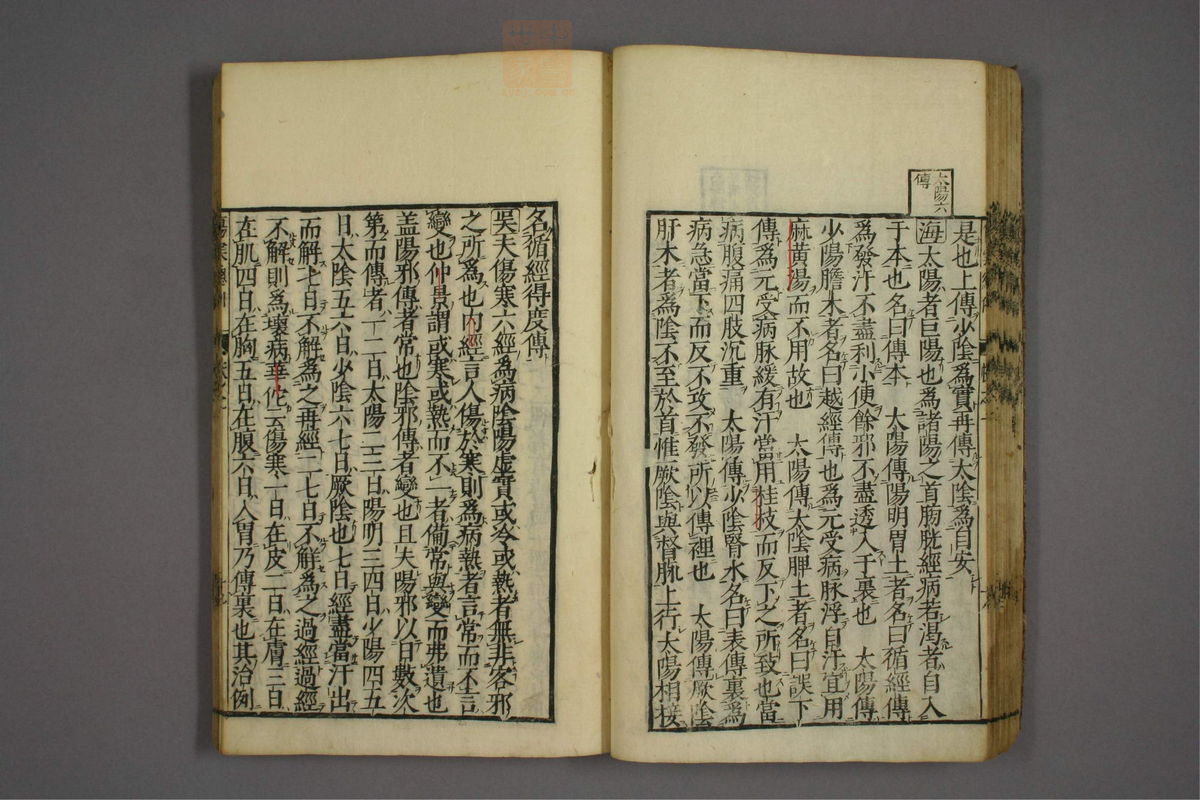 太陽六
傳
是也上傳少陰爲實再傳太陰爲自安
海太陽者巨陽也爲諸陽之首膀胱經病若渴者自入
于本也名曰傳本 太陽傳陽明胃土者名曰循經傳
爲發汗不盡利小便餘邪不盡透入于裏也 太陽傳
少陽膽木者名曰越經傳也爲元受病脉浮自汗宜用
麻黄湯而不用故也 太陽傳太陰脾土者名曰誤下
傳爲元受病脉緩有汗當用桂枝而反下之所致也當
病腹痛四肢沉重 太陽傳少陰腎水名曰表傳裏爲
病急當下而反不攻不發所以傳裡也 太陽傳厥陰
肝木者爲陰不至於首惟厥陰與督脉上行太陽相接
名循經得度傳
吳夫傷寒六經爲病陰陽虛實或冷或熱者無非客邪
之所爲也内經言人傷於寒則爲病熱者言常而不言
變也仲景謂或寒或熱而不一者備常與變而弗遺也
盖陽邪傳者常也陰邪傳者變也且夫陽邪以日數次
第而傳者一二日太陽二三日陽明三四日少陽四五
日太陰五六日少陰六七日厥陰也七日經盡當汗出
而解七日不解爲之再經二七日不解爲之過經過經
不解則爲壞病華佗云傷寒一日在皮二日在膚三日
在肌四日在胸五日在腹六日入胃乃傳裏也其治例